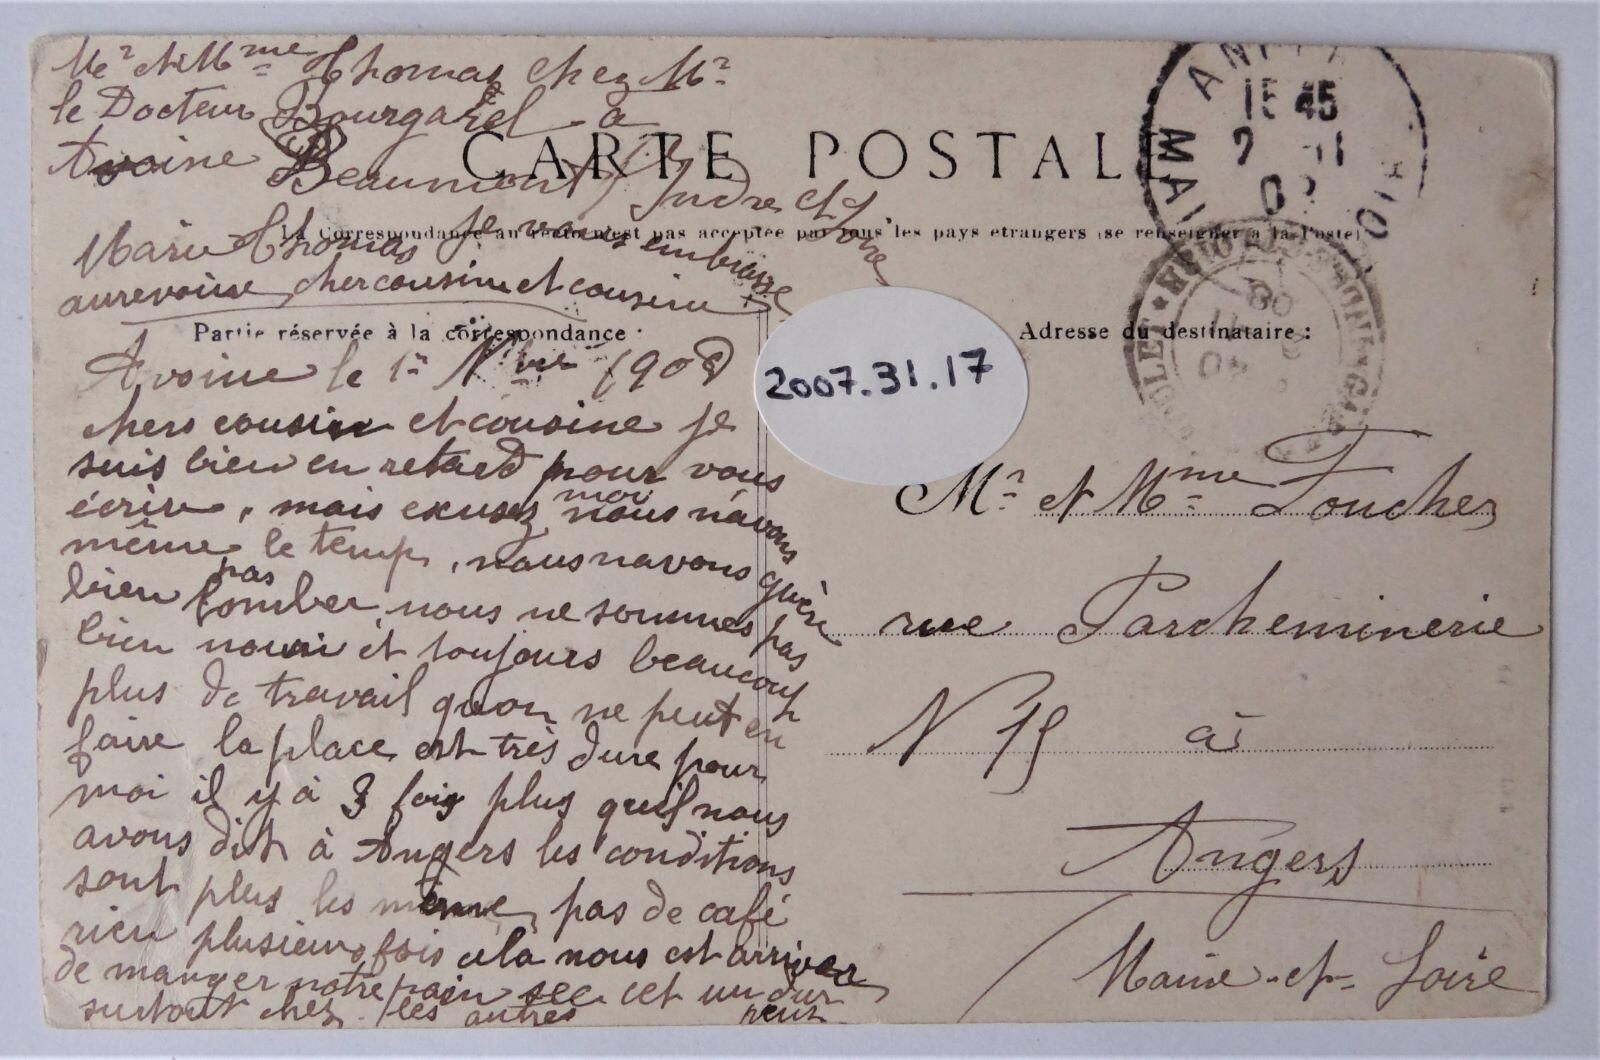 Mr et Mme Thomas chez Mr
le Docteur Bourgarel à
Avoine Beaumont Indre et Loire
CARTE POSTALE
La Correspondance au recto n'est pas acceptée par tous les pays étrangers (se renseigner à la Poste)
Marie Thomas je vous embrasse
aurevoire cher cousin et cousine
Partie réservée à la correspondance :
Avoine le 1r Nbre 1908
chers cousin et cousine je
suis bien en retard pour vous
écrire, mais excusez moi nous n'avons
même le temp, nous navons guère
bien pas tomber, nous ne sommes pas
bien nourri et toujours beaucoup
plus de travail quon ne peut en
faire la place est très dure pour
moi il y à 3 fois plus quil nous
avons dit à Angers les conditions
sont plus les même, pas de café
rien plusieurs fois cela nous est arriver
de manger notre pain sec cet un dur
surtout chez les autres
2007.31.17
Adresse du destinataire :
Mr et Mme Fouchez
rue Parcheminerie
N 15 à
Angers
Maine-et-Loire
15 45
MAI